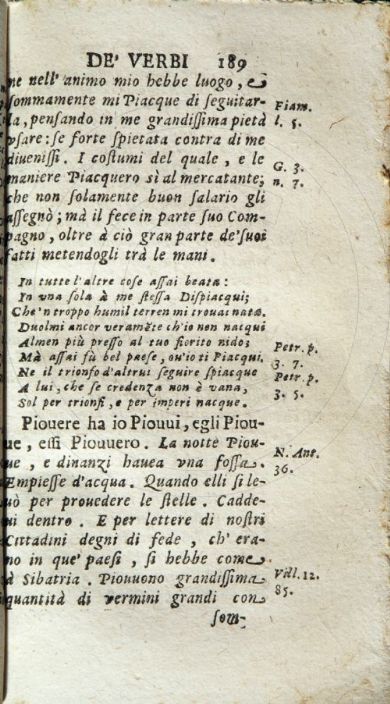 DE' VERBI 189
ne nell' animo mio hebbe luogo, e
sommamente mi Piacque di seguitar-
la, pensando in me grandissima pietà
vsare: se forte spietata contra di me
diuenissi. I costumi del quale, e le
maniere Piacquero sì al mercatante;
che non solamente buon salario gli
assegnò; mà il fece in parte suo Com-
pagno, oltre à ciò gran parte de' suoi
fatti metendogli trà le mani.
Fiam.
l. 5.
G. 3.
n. 7.
In tutte l'altre cose assai beata:
In vna sola à me stessa Dispiacqui;
Che'n troppo humil terren mi trouai nata.
Duolmi ancor veramẽte ch'io non nacqui
Almen più presso al tuo fiorito nido;
Mà assai fù bel paese, ou'io ti Piacqui.
Ne il trionfo d'altrui seguire spiacque
A lui, che se credenza non è vana,
Sol per trionfi, e per imperi nacque.
Petr. p.
3. 7.
Petr. p.
3. 5.
Piouere ha io Piouui, egli Piou-
ue, essi Piouuero. La notte Piou-
ue, e dinanzi hauea vna fossa.
Empiesse d'acqua. Quando elli si le-
uò per prouedere le stelle. Cadde-
ui dentro. E per lettere di nostri
Cittadini degni di fede, ch' era-
no in que' paesi, si hebbe come
à Sibatria. Piouuono grandissima
quantità di vermini grandi con
N. Ant.
36.
Vill. 12.
85.
som-